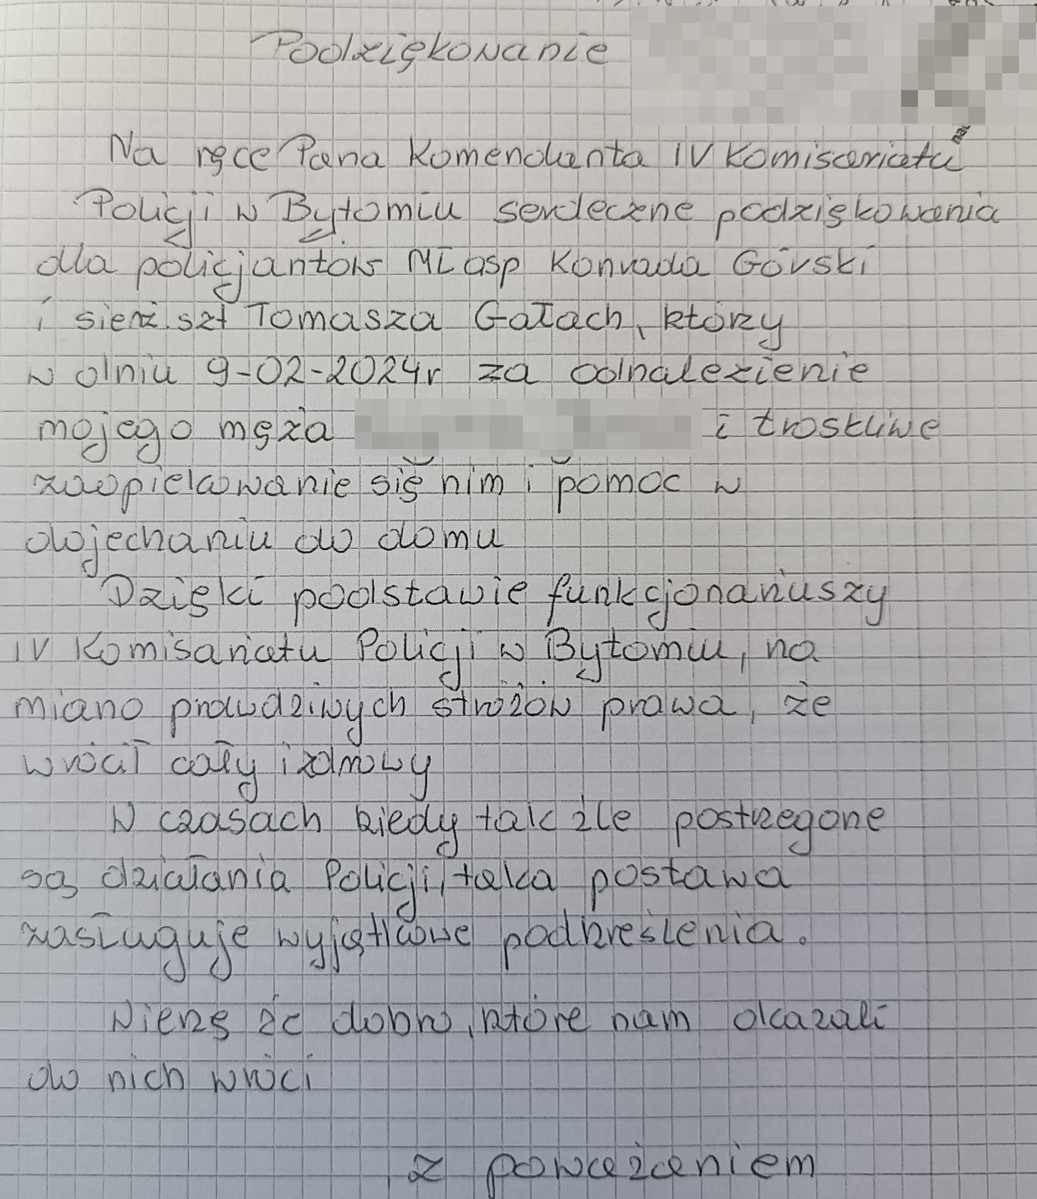 Podziękowanie
Na ręce Pana Komendanta IV Komisariatu
Policji w Bytomiu serdeczne podziękowania
dla policjantów Mł asp Konrada Górski
i sierż.szt Tomasza Gałach, którzy
w dniu 9-02-2024r za odnalezienie
mojego męża i troskliwe
zaopiekowanie się nim i pomoc w
dojechaniu do domu
Dzięki podstawie funkcjonariuszy
IV Komisariatu Policji w Bytomiu, na
miano prawdziwych stróżów prawa, że
wrócił cały i zdrowy
W czasach kiedy tak źle postrzegone
są działania Policji, taka postawa
zasługuje wyjątkowe podkreślenia.
Wierzę że dobro, które nam okazali
do nich wróci
z poważaniem